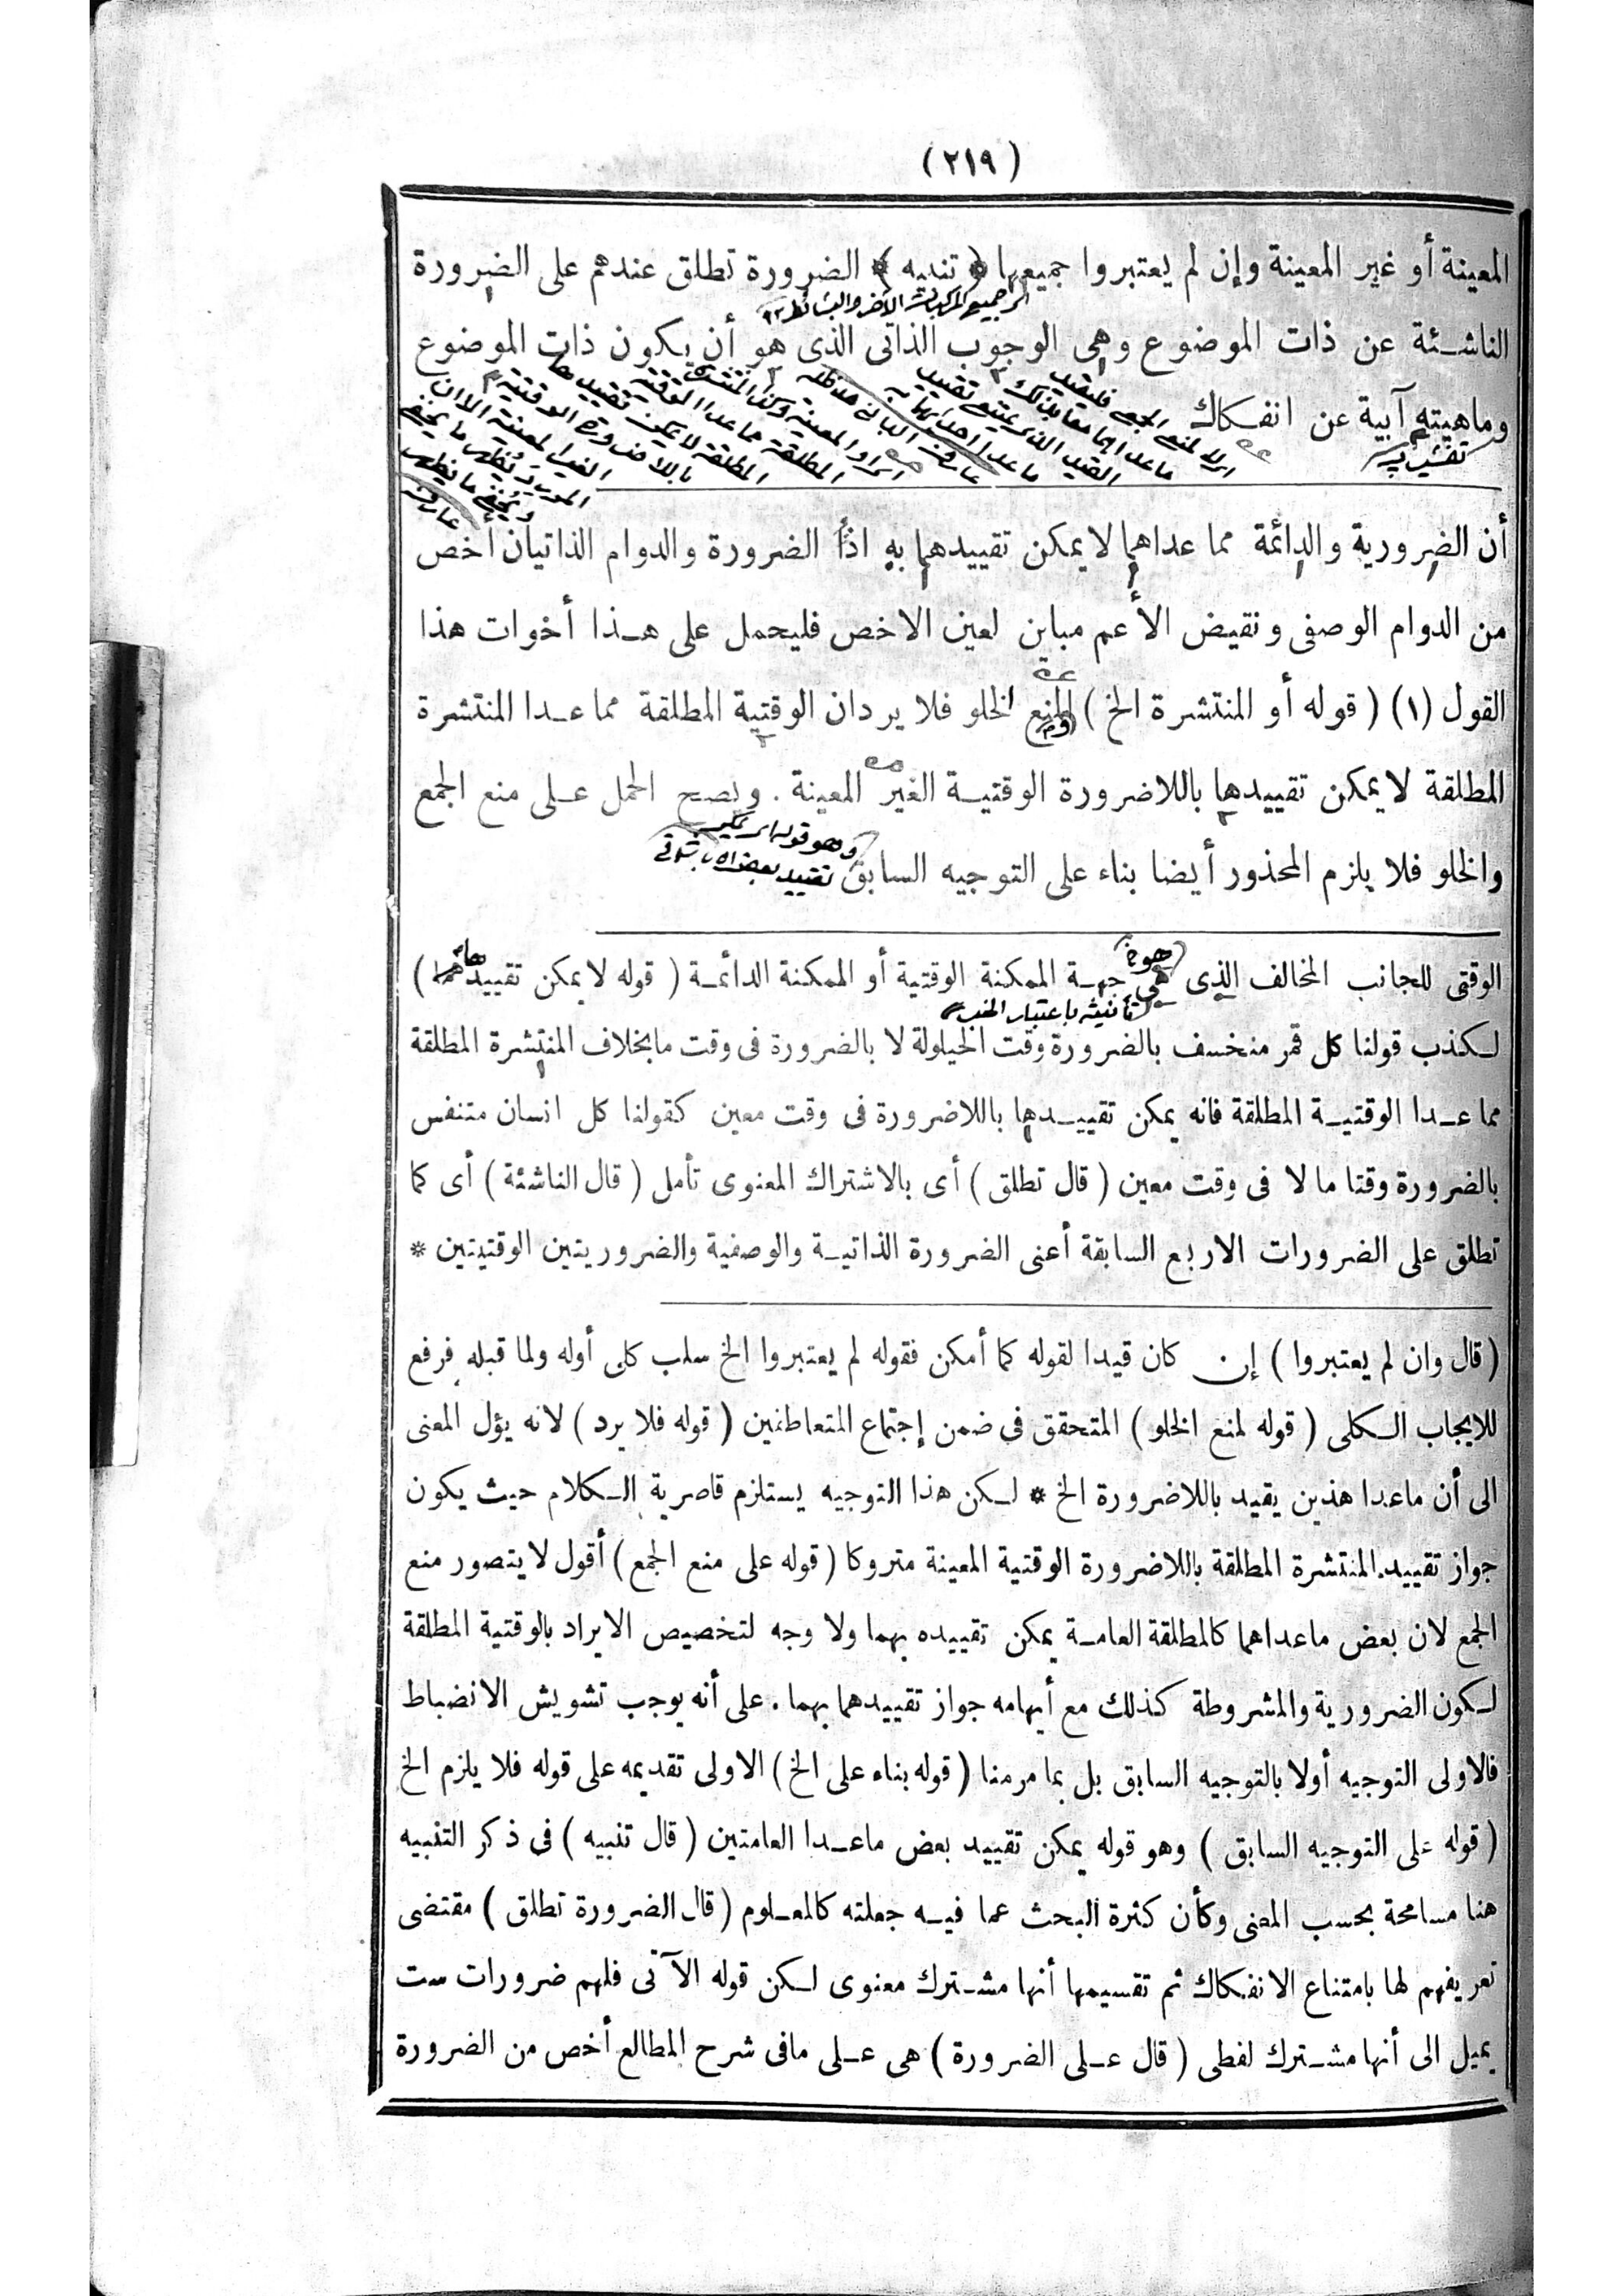 (٢١٩)
المعينة أو غير المعينة وإن لم يعتبروا جميعها * تنبيه * الضرورة تطلق عندهم على الضرورة
الناشئة عن ذات الموضوع وهى الوجوب الذاتى الذى هو أن يكون ذات الموضوع
وماهيته آبية عن انفكاك
أن الضرورية والدائمة مما عداهما لا يمكن تقييدهما به اذ الضرورة والدوام الذاتيان أخص
من الدوام الوصفى ونقيض الأعم مباين لعين الاخص فليحمل على هذا أخوات هذا
القول (١) (قوله أو المنتشرة الخ) لمنع الخلو فلا يرد ان الوقتية المطلقة مما عدا المنتشرة
المطلقة لا يمكن تقييدها باللاضرورة الوقتية الغير المعينة . ويصح الحمل على منع الجمع
وهو قوله اى يمكن
والخلو فلا يلزم المحذور أيضا بناء على التوجيه السابق
هو
الوقتى للجانب المخالف الذى هى جهة الممكنة الوقتية أو الممكنة الدائمة (قوله لا يمكن تقييدهما)
تأنيثه باعتبار الخبر
لكذب قولنا كل قمر منخسف بالضرورة وقت الحيلولة لا بالضرورة فى وقت ما بخلاف المنتشرة المطلقة
مما عدا الوقتية المطلقة فانه يمكن تقييدها باللاضرورة فى وقت معين كقولنا كل انسان متنفس
بالضرورة وقتا ما لا فى وقت معين (قال تطلق) أى بالاشتراك المعنوى تأمل (قال الناشئة) أى كما
تطلق على الضرورات الاربع السابقة أعنى الضرورة الذاتية والوصفية والضروريتين الوقتيتين *
(قال وان لم يعتبروا) إن كان قيدا لقوله كما أمكن فقوله لم يعتبروا الخ سلب كلى أوله ولما قبله فرفع
للايجاب الكلى (قوله لمنع الخلو) المتحقق فى ضمن إجتماع المتعاطفين (قوله فلا يرد) لانه يؤل المعنى
الى أن ماعدا هذين يقيد باللاضرورة الخ * لكن هذا التوجيه يستلزم قاصرية الكلام حيث يكون
جواز تقييد المنتشرة المطلقة باللاضرورة الوقتية المعينة متروكا (قوله على منع الجمع) أقول لا يتصور منع
الجمع لان بعض ماعداهما كالمطلقة العامة يمكن تقييده بهما ولا وجه لتخصيص الايراد بالوقتية المطلقة
لكون الضرورية والمشروطة كذلك مع أيهامه جواز تقييدهما بهما . على أنه يوجب تشويش الانضباط
فالاولى التوجيه أولا بالتوجيه السابق بل بما مر منا (قوله بناء على الخ) الاولى تقديمه على قوله فلا يلزم الخ
(قوله على التوجيه السابق) وهو قوله يمكن تقييد بعض ماعدا العامتين (قال تنبيه) فى ذكر التنبيه
هنا مسامحة بحسب المعنى وكأن كثرة البحث عما فيه جعلته كالمعلوم (قال الضرورة تطلق) مقتضى
تعريفهم لها بامتناع الانفكاك ثم تقسيمها أنها مشترك معنوى لكن قوله الآتى فلهم ضرورات ست
يميل الى أنها مشترك لفظى (قال على الضرورة) هى على مافى شرح المطالع أخص من الضرورة